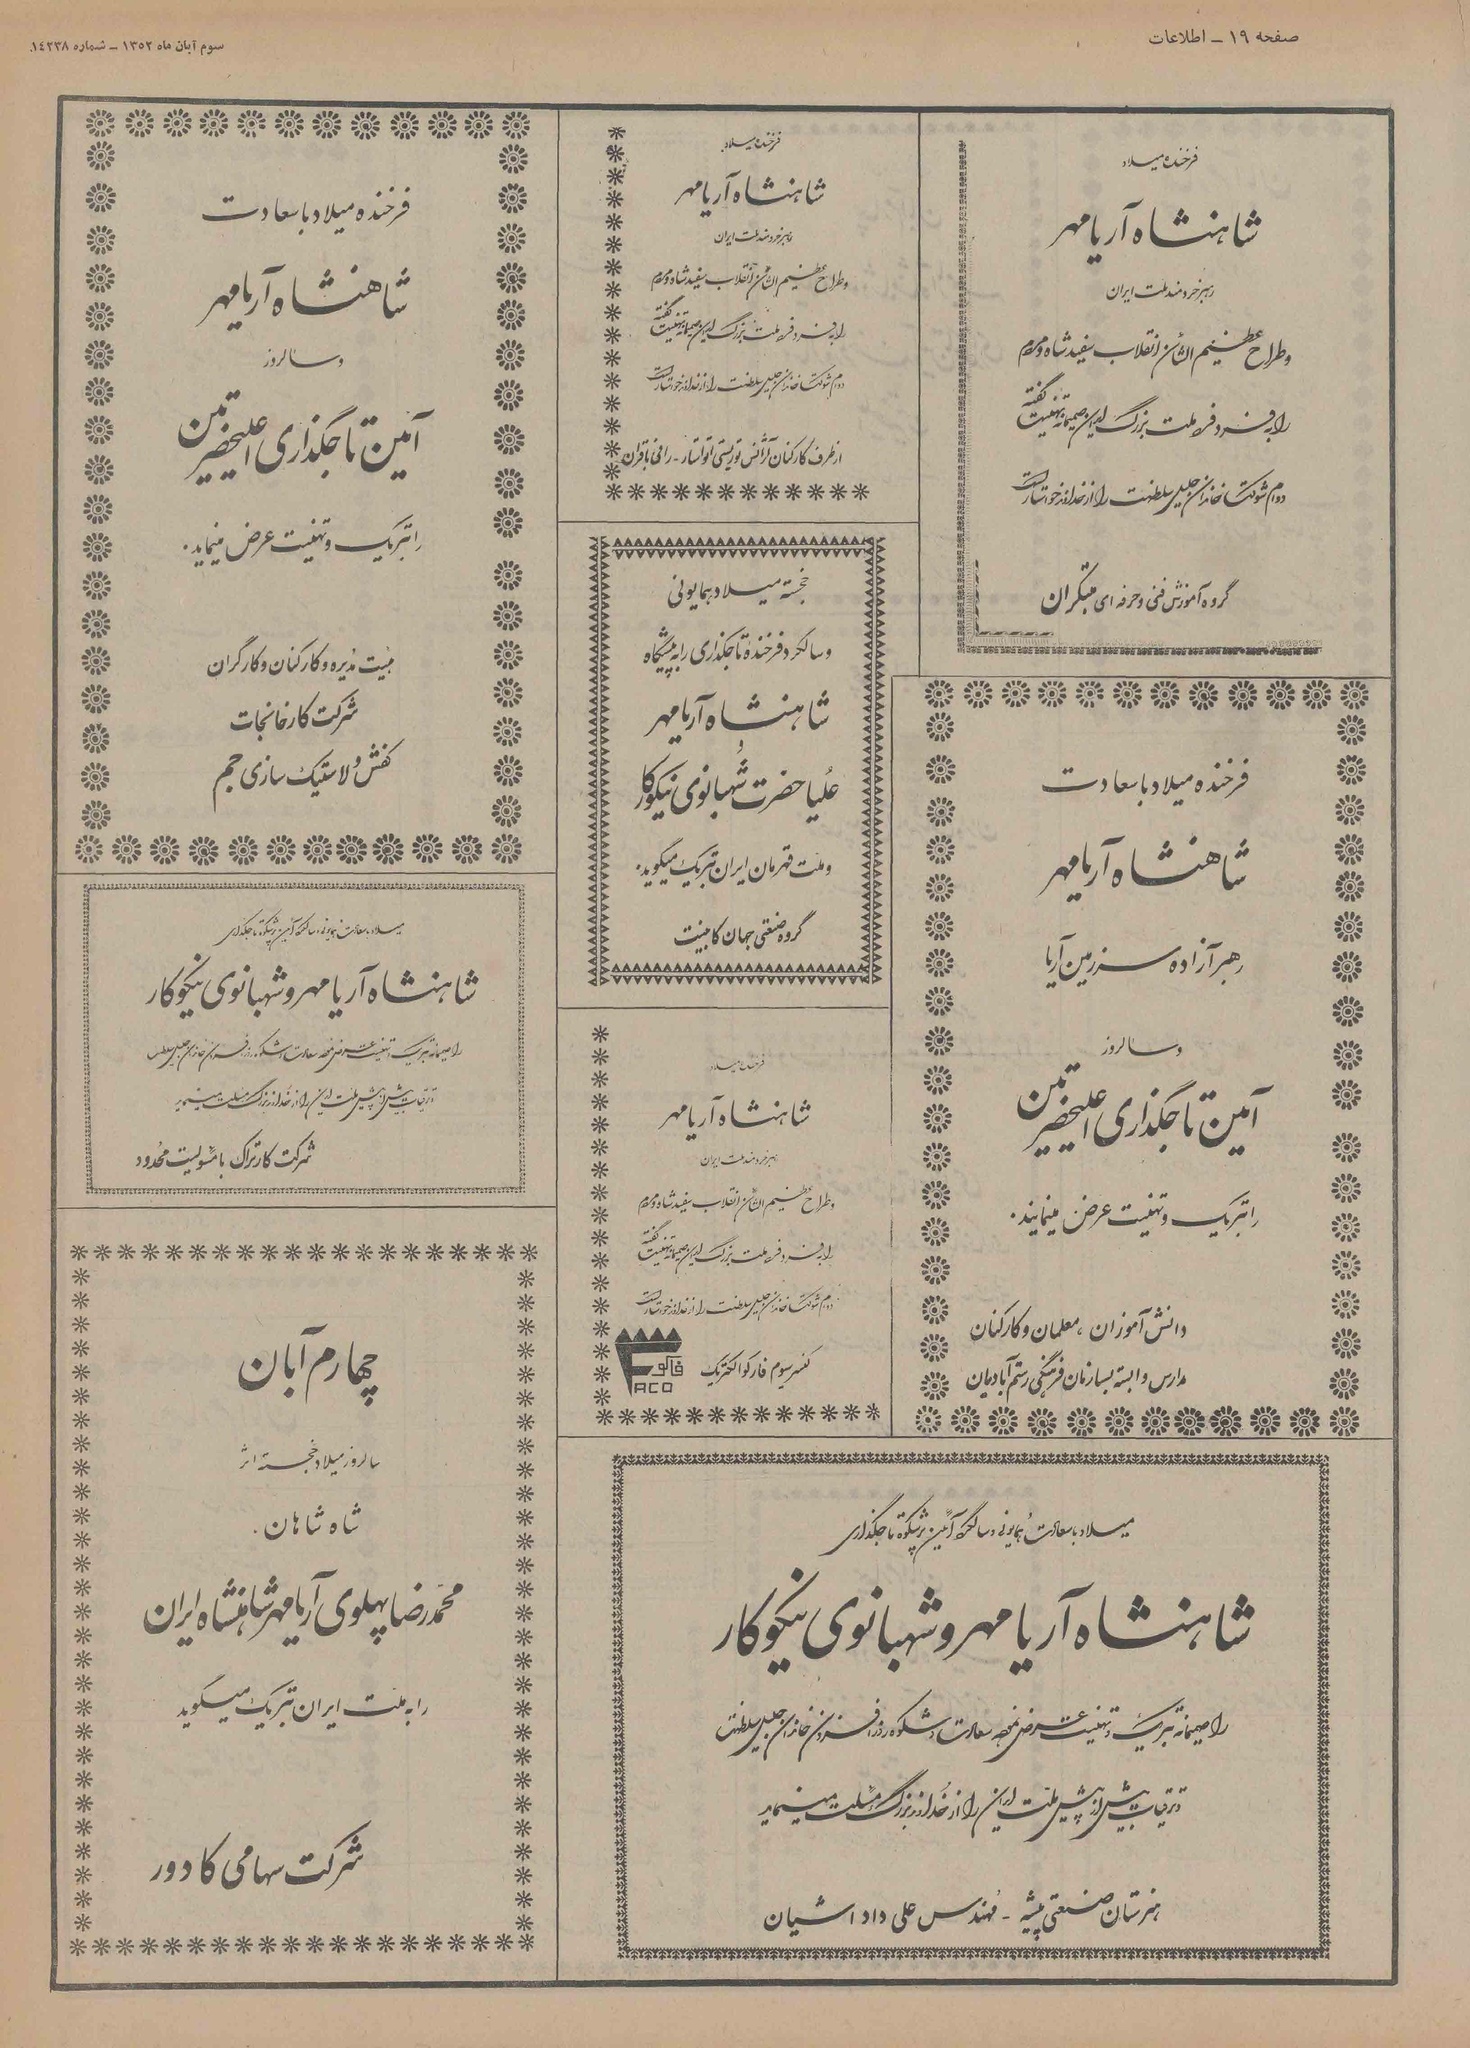 صفحه ۱۹ - اطلاعات
سوم آبان ماه ۱۳۵۲ - شماره ۱۴۲۳۸
فرخنده میلاد
شاهنشاه آریامهر
رهبر خردمند ملت ایران
وطراح عظیم الشأن انقلاب سفید شاه و مردم
را به فرد فرد ملت بزرگ ایران صمیمانه تهنیت گفته
دوام شوکت خاندان جلیل سلطنت را از خداوند خواستار است
گروه آموزش فنی و حرفه ای مبتکران
فرخنده میلاد
شاهنشاه آریامهر
رهبر خردمند ملت ایران
وطراح عظیم الشأن انقلاب سفید شاه و مردم
را به فرد فرد ملت بزرگ ایران صمیمانه تهنیت گفته
دوام شوکت خاندان جلیل سلطنت را از خداوند خواستار است
از طرف کارکنان آژانس توریستی اتواستار - رافی باقران
فرخنده میلاد با سعادت
شاهنشاه آریامهر
و سالروز
آئین تاجگذاری اعلیحضرتین
را تبریک و تهنیت عرض مینماید.
هیئت مدیره و کارکنان و کارگران
شرکت کارخانجات
کفش و لاستیک سازی جم
خجسته میلاد همایونی
و سالگرد فرخنده تاجگذاری را به پیشگاه
شاهنشاه آریامهر
و
علیا حضرت شهبانوی نیکوکار
و ملت قهرمان ایران تبریک میگوید.
گروه صنعتی جهان کابینت
فرخنده میلاد با سعادت
شاهنشاه آریامهر
رهبر آزاده سرزمین آریا
و سالروز
آئین تاجگذاری اعلیحضرتین
را تبریک و تهنیت عرض مینمایند.
دانش آموزان ، معلمان و کارکنان
مدارس وابسته بسازمان فرهنگی رستم آبادیان
میلاد با سعادت همایونی و سالگرد آئین پرشکوه تاجگذاری
شاهنشاه آریامهر و شهبانوی نیکوکار
را صمیمانه تبریک و تهنیت عرض نموده سعادت و شکوه روزافزون خاندان جلیل سلطنت
و ترقیات بیش از پیش ملت ایران را از خداوند بزرگ مسئلت مینماید
شرکت کارتراک با مسئولیت محدود
فرخنده میلاد
شاهنشاه آریامهر
رهبر خردمند ملت ایران
وطراح عظیم الشأن انقلاب سفید شاه و مردم
را به فرد فرد ملت بزرگ ایران صمیمانه تهنیت گفته
دوام شوکت خاندان جلیل سلطنت را از خداوند خواستار است
کنسرسیوم فارکو الکتریک
فاکو
FACO
چهارم آبان
سالروز میلاد خجسته اثر
شاه شاهان.
محمدرضا پهلوی آریامهر شاهنشاه ایران
را به ملت ایران تبریک میگوید
شرکت سهامی کادور
میلاد با سعادت همایونی و سالگرد آئین پرشکوه تاجگذاری
شاهنشاه آریامهر و شهبانوی نیکوکار
را صمیمانه تبریک و تهنیت عرض نموده سعادت و شکوه روزافزون خاندان جلیل سلطنت
و ترقیات بیش از پیش ملت ایران را از خداوند بزرگ مسئلت مینماید
هنرستان صنعتی پیشه - مهندس علی داداشیان